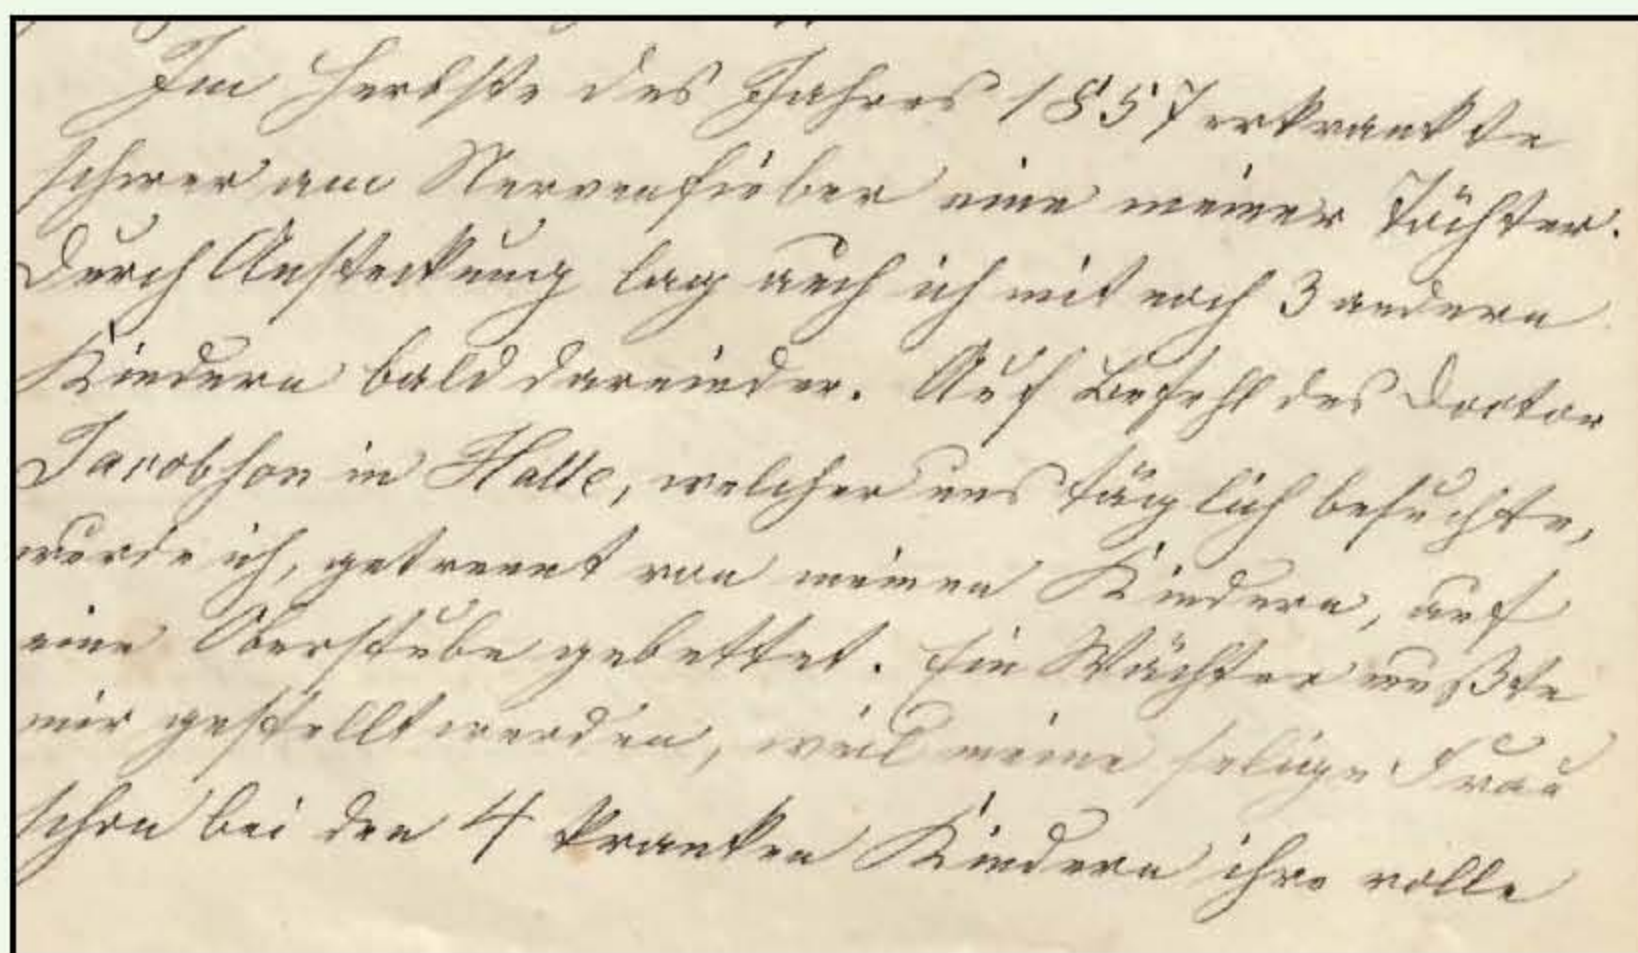 Im Herbste des Jahres 1857 erkrankte
schwer am Nervenfieber eine meiner Töchter.
Durch Ansteckung lag auch ich mit noch 3 andern
Kindern bald darnieder. Auf Befehl des Doctor
Jacobson in Halle, welcher uns täglich besuchte,
wurde ich, getrennt von meinen Kindern, auf
eine Oberstube gebettet. Ein Wächter mußte
mir gestellt werden, weil meine selige Frau
schon bei den 4 kranken Kindern ihre volle